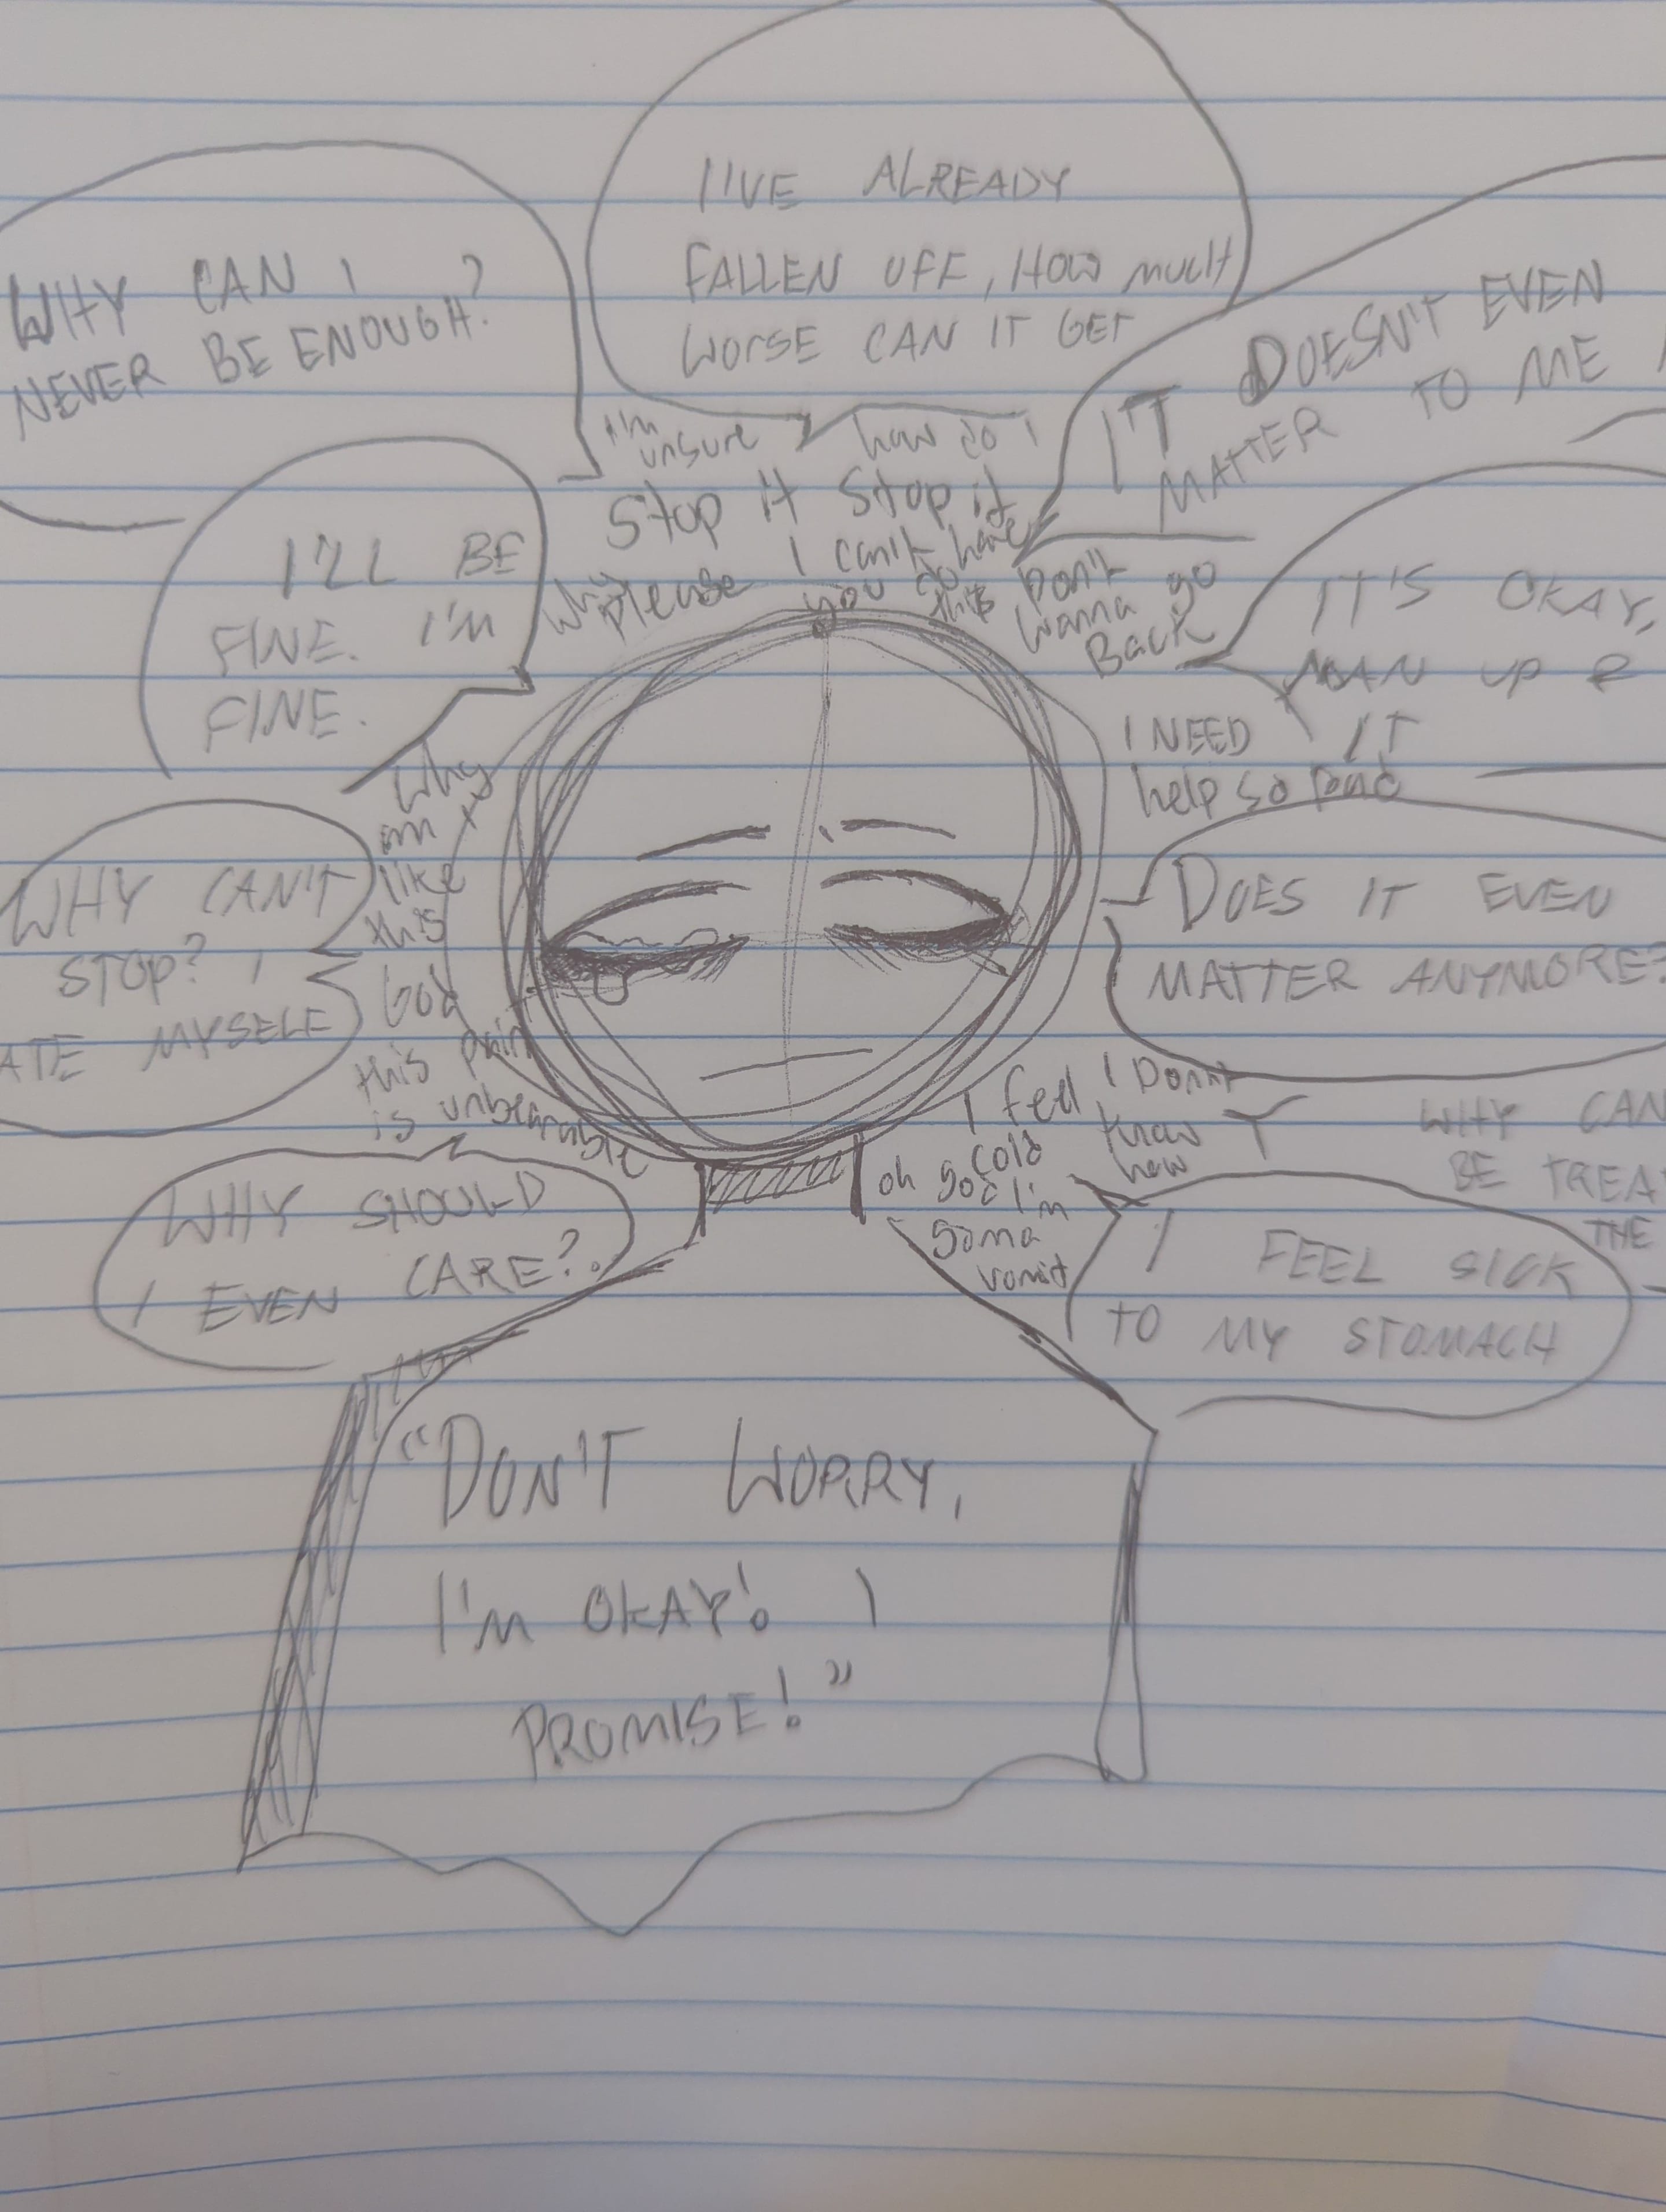 I'VE ALREADY
FALLEN OFF, HOW MUCH
WORSE CAN IT GET
WHY CAN I
NEVER BE ENOUGH?
IT DOESN'T EVEN
MATTER TO ME
I'm
unsure
how do I
Stop it Stop it
why
please
I can't have
you do
this
Don't
wanna go
Back
I'LL BE
FINE. I'M
FINE.
IT'S OKAY,
MAN UP
IT
I NEED
help so
Why
am I
like
this
God
this pain
is unbearable
WHY CAN'T
STOP? I
ATE MYSELF
DOES IT EVEN
MATTER ANYMORE?
I feel
cold
oh god I'm
gonna
vomit
I Don't
know
how
WHY CAN
BE TREA
THE
WHY SHOULD
I EVEN CARE?
I FEEL SICK
TO MY STOMACH
"DON'T WORRY,
I'M OKAY! I
PROMISE!"